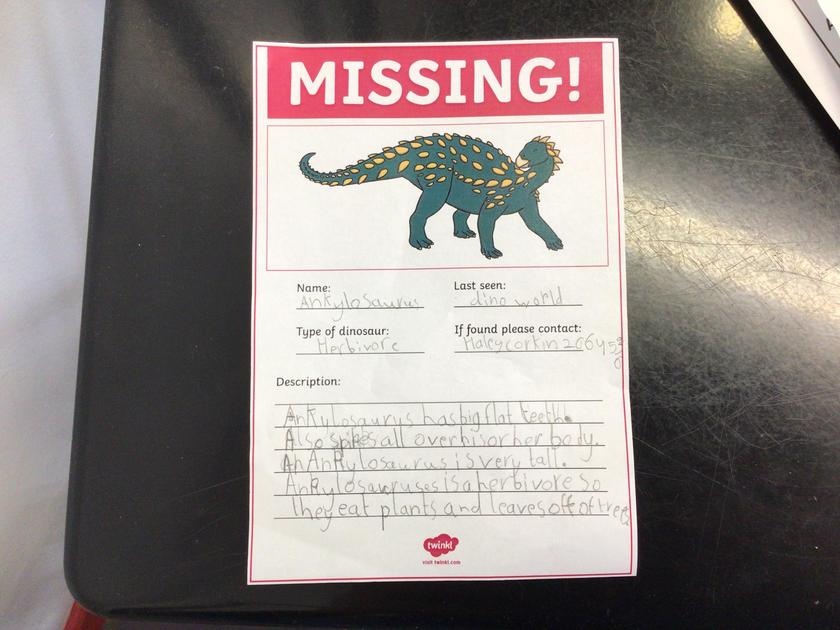 MISSING!
Name:
Ankylosaurus
Last seen:
dino world
Type of dinosaur:
Herbivore
If found please contact:
Description:
Ankylosaurus has big flat teeth.
Also spikes all over his or her body.
An Ankylosaurus is very tall.
Ankylosauruses is a herbivore so
they eat plants and leaves off of trees
twinkl
visit twinkl.com